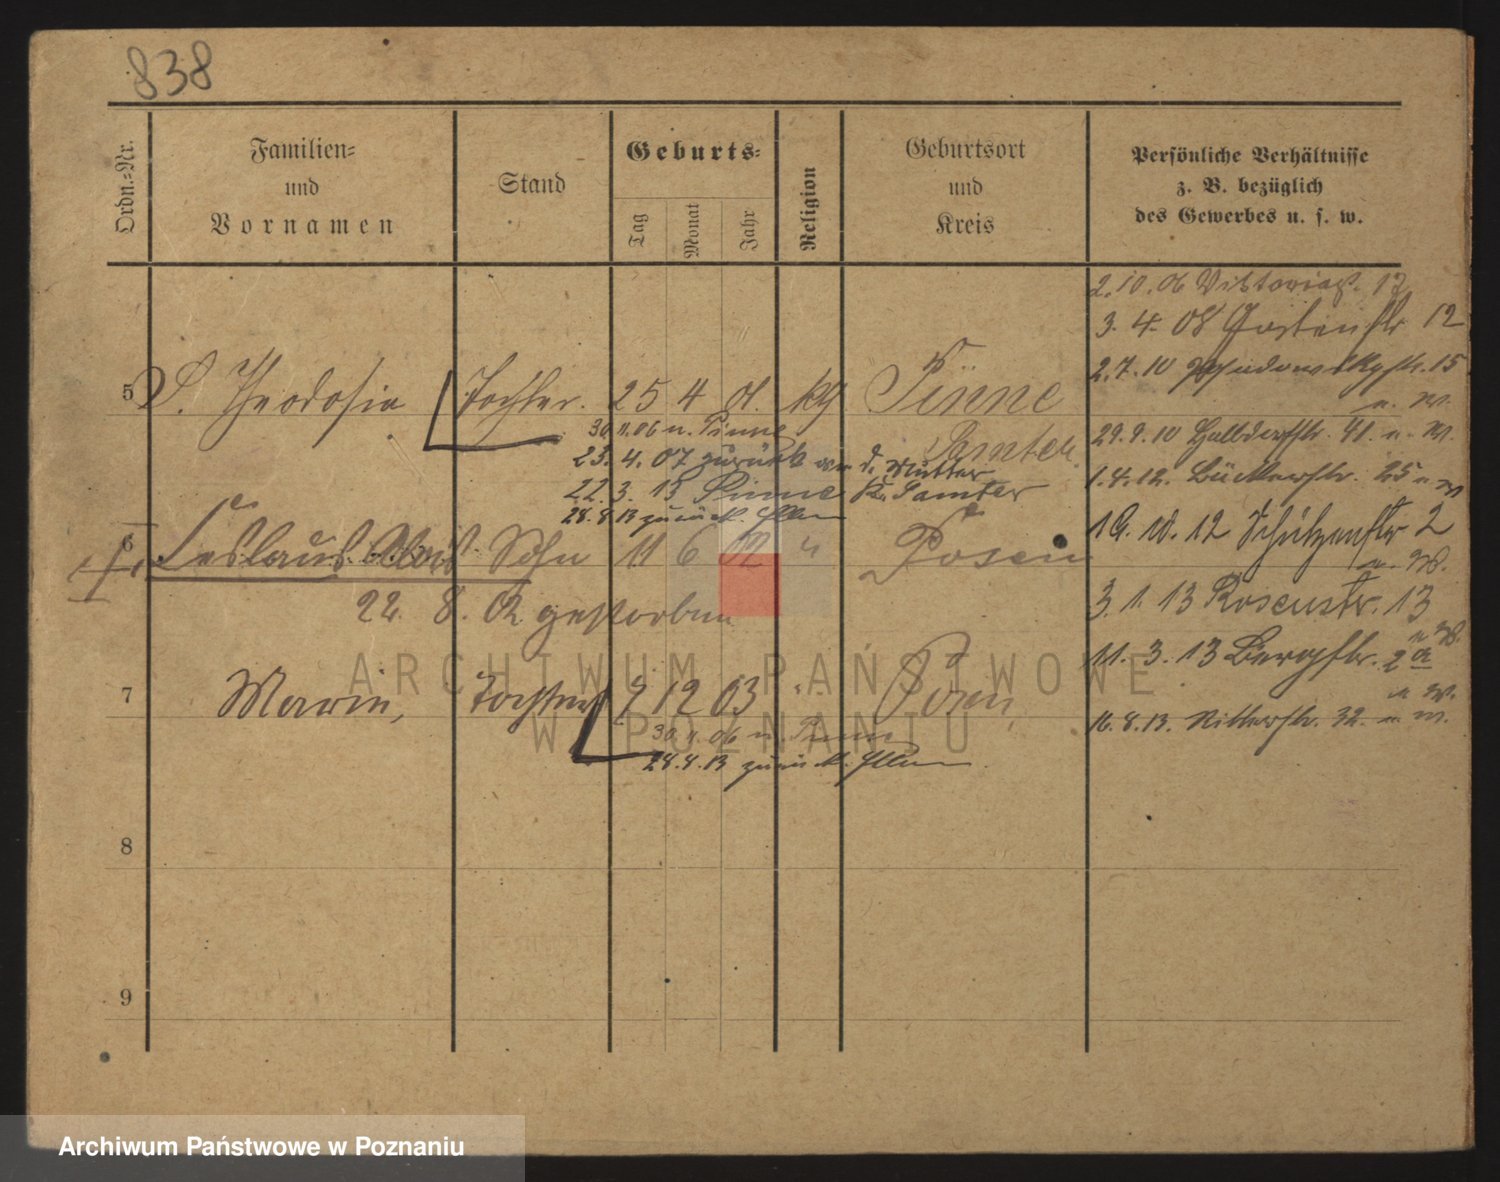 838
Ordn.-Nr.
Familien-
und
Vornamen
Stand
Geburts-
Tag
Monat
Jahr
Religion
Geburtsort
und
Kreis
Persönliche Verhältnisse
z. B. bezüglich
des Gewerbes u. s. w.
2.10.06 Viktoriast. 13
3. 4. 08 Gartenstr 12
2.7.10 15
u. W.
29.9.10 Halbdorfstr. 41. u. W.
1.4.12. Bäckerstr. 25 u W
19. 10. 12 Schützenstr 2
u. W.
3. 1. 13 Rosenstr. 13
u W.
11. 3. 13 Bergstr. 2a
u W.
16.8.13. Ritterstr. 32. u W.
5 Theodosia Tochter. 25 4 01. kth Pinne
Samter.
30.11.06 n. Pinne
23. 4. 07 zurück von d. Mutter
22. 3. 13 Pinne Kr. Samter
28.8.13 zurück. Eltern
6 Ceslaus Alois Sohn 11 6 02 " Posen
22. 8. 02 gestorben
7 Marie, Tochter 7 12 03 " Posen
30.11.06 n. Pinne
28.8.13 zurück. Eltern
8
9
ARCHIWUM PAŃSTWOWE
W POZNANIU
Archiwum Państwowe w Poznaniu